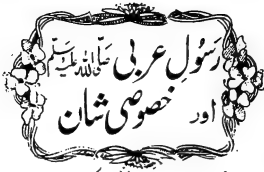 رَسُولِ عربی صلی اللہ علیہ وسلم
اور خصوصی شان